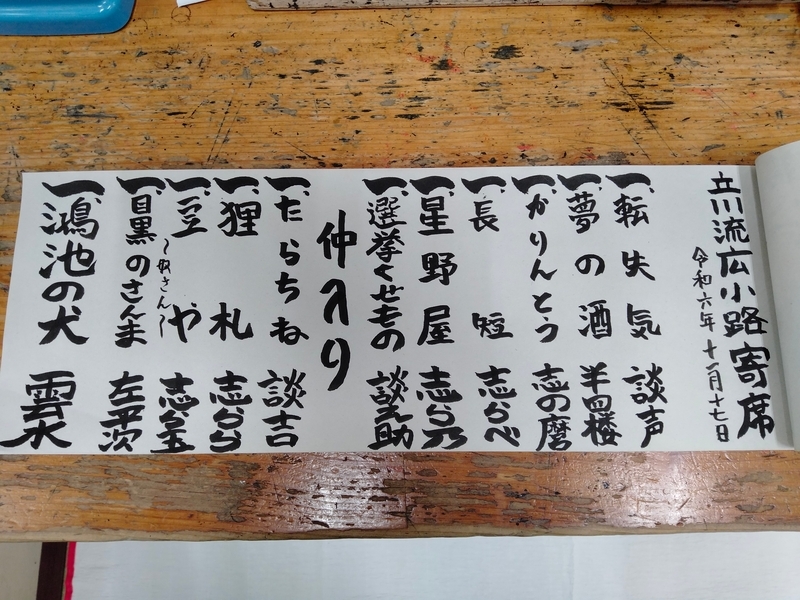 立川流広小路寄席
令和六年十一月十七日
一、転失気 談声
一、夢の酒 半四楼
一、かりんとう 志の麿
一、長短 志らべ
一、星野屋 志ら乃
一、選挙くせもの 談之助
仲入り
一、たらちね 談吉
一、狸札 志らら
一、豆や 志ら玉
～奴さん～
一、目黒のさんま 左平次
一、鴻池の犬 雲水